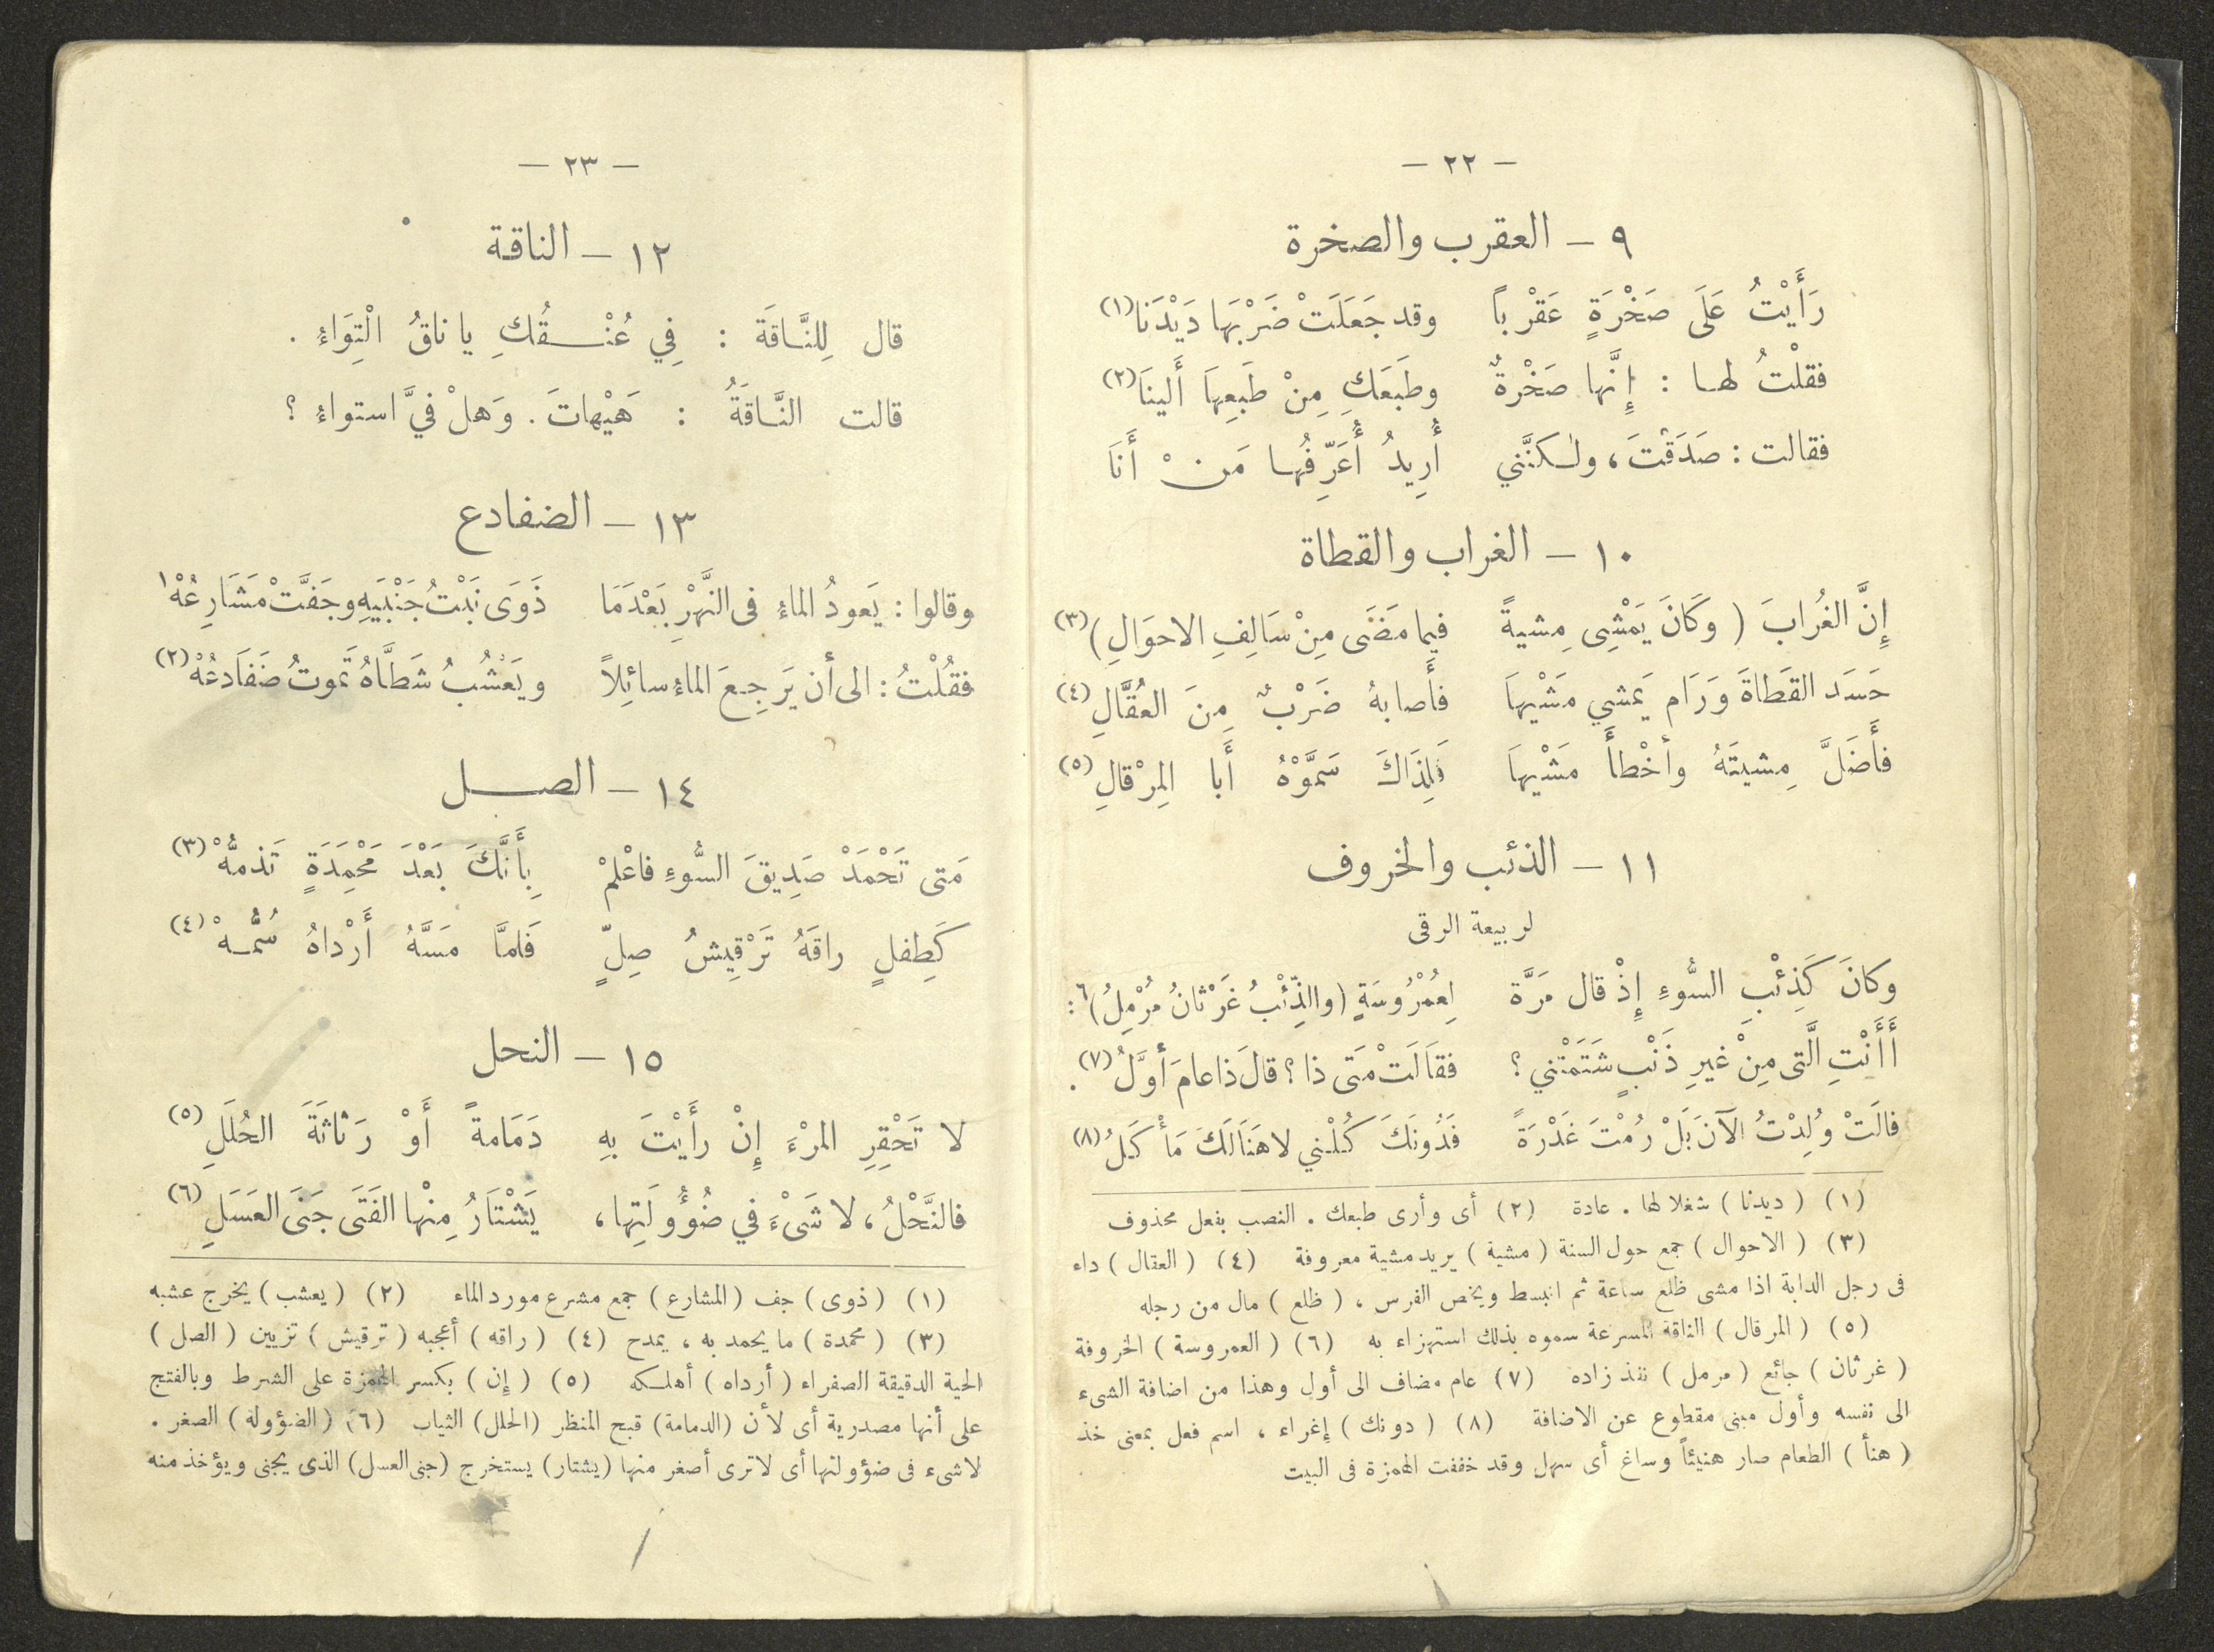 — ٢٢ —
٩ — العقرب والصخرة
رَأَيْتُ عَلَى صَخْرَةٍ عَقْرَباً وقد جَعَلَتْ ضَرْبَهَا دَيْدَنَا (١)
فقلْتُ لها : إِنَّها صَخْرةٌ وطَبَعَكِ مِنْ طَبَعِهاَ أَلْيَنَا (٢)
فقالت : صَدَقْتَ ، ولكنَّني أُرِيدُ أُعَرِّفُها مَنْ أَنَا
١٠ — الغراب والقطاة
إِنَّ الغُرابَ ( وكَانَ يَمْشِى مِشيةً فيما مَضَى مِنْ سَالِفِ الاحوَالِ ) (٣)
حَسَد القَطاةَ وَرَام يَمشي مَشْيهاَ فأَصابهُ ضَرْبٌ مِنَ العُقَّالِ (٤)
فأَضَلَّ مِشيتَهُ وأخْطأَ مَشْيهاَ فَلِذَاكَ سَمَّوْهُ أَبا المِرْقالِ (٥)
١١ — الذئب والخروف
لربيعة الرقى
وكانَ كَذِئْبِ السُّوءِ إِذْ قال مَرَّة لِعُمْرُوسَةٍ (والذِّئْبُ غَرْثانُ مُرْمِلُ) ٦ :
أَأَنْتِ الَّتى مِنْ غيرِ ذَنْبٍ شَتَمْتْني ؟ فقاَلَتْ مَتَى ذا ؟ قالَ ذا عامَ أوَّلُ (٧) .
قالَتْ وُلِدْتُ الآنَ بَلْ رُمْتَ غَدْرَةً فَدُونَكَ كُلْني لا هَنَالَكَ مَأْكَلُ (٨)
(١) ( ديدنا ) شغلا لها . عادة (٢) أى وأرى طبعك . النصب بفعل محذوف
(٣) ( الاحوال ) جمع حول السنة ( مشية ) يريد مشية معروفة (٤) ( العقال ) داء
فى رجل الدابة اذا مشى ظلع ساعة ثم انبسط ويخص الفرس ، ( ظلع ) مال من رجله
(٥) ( المرقال ) الناقة المسرعة سموه بذلك استهزاء به (٦) ( العمروسة ) الخروفة
( غرثان ) جائع ( مرمل ) نفذ زاده (٧) عام مضاف الى أول وهذا من اضافة الشىء
الى نفسه وأول مبنى مقطوع عن الاضافة (٨) ( دونك ) إغراء ، اسم فعل بمعنى خذ
( هنأ ) الطعام صار هنيئاً وساغ أى سهل وقد خففت الهمزة فى البيت
— ٢٣ —
١٢ — الناقة
قال لِلنَّاقَة : فِي عُنْقُكِ يا ناقُ الْتِوَاءُ .
قالت النَّاقَةُ : هَيْهاتَ . وَهلْ فيَّ استواءُ ؟
١٣ — الضفادع
وقالوا : يَعودُ الماءُ فى النَّهْرِ بَعْدَمَا ذَوَى نَبْتُ جَنْبَيَهِ وجَفَّتْ مَشَارِعُهْ ١
فقُلْتُ : الى أن يَرجِعَ الماءُ سائِلاً ويَعْشُبُ شَطَّاهُ تَموتُ ضَفَادعُهْ (٢)
١٤ — الصل
مَتى تَحْمَدْ صَدِيقَ السُّوءِ فاعْلمْ بِأَنَّكَ بَعْدَ مَحْمِدَةٍ تَذمُّهْ (٣)
كَطِفلٍ راقَهُ تَرْقِيشُ صِلٍّ فَلمَّا مَسَّهُ أَرْداهُ سُمُّهْ (٤)
١٥ — النحل
لا تَحْقِرِ المرْءَ إِنْ رأَيْتَ بِهِ دَمَامةً أَوْ رَثاثَةَ الحُلَلِ (٥)
فالنَّحْلُ ، لا شَىْءَ في ضُوُولَتِها ، يَشْتَارُ مِنْها الفَتَى جَنَى العَسَلِ (٦)
(١) ( ذوى ) جف ( المشارع ) جمع مشرع مورد الماء (٢) ( يعشب ) يخرج عشبه
(٣) ( محمدة ) ما يحمد به ، يمدح (٤) ( راقه ) أعجبه ( ترقيش ) تزيين ( الصل )
الحية الدقيقة الصفراء ( أرداه ) أهلكه (٥) ( إن ) بكسر الهمزة على الشرط وبالفتج
على أنها مصدرية أى لأن (الدمامة) قبح المنظر (الحلل) الثياب (٦) (الضؤولة) الصغر .
لاشىء فى ضؤولتها أى لاترى أصغر منها (يشتار) يستخرج (جنى العسل) الذى يجنى ويؤخذ منه